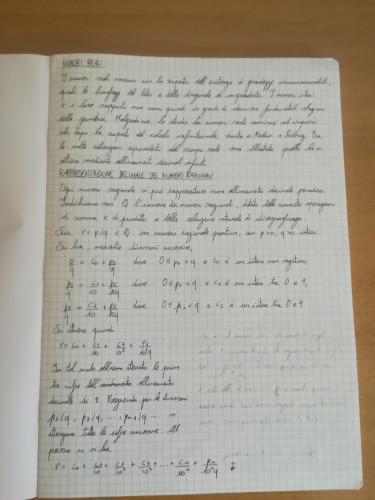 NUMERI REALI
I numeri reali nascono con la scoperta dell'esistenza di grandezze incommensurabili,
quali la lunghezza del lato e della diagonale di un quadrato. I numeri interi
e i loro rapporti non sono quindi in grado di descrivere fondamentali relazioni
della geometria. Malgrado ciò, lo studio dei numeri reali comincia ad imporsi
solo dopo la scoperta del calcolo infinitesimale, dovuta a Newton e Leibniz. Tra
le molte costruzioni equivalenti del campo reale sarà illustrata quella che si
ottiene mediante allineamenti decimali infiniti.
RAPPRESENTAZIONE DECIMALE DEI NUMERI RAZIONALI
Ogni numero razionale si può rappresentare come allineamento decimale periodico.
Indichiamo con Q l'insieme dei numeri razionali, dotato delle usuali operazioni
di somma e di prodotto e della relazione naturale di disuguaglianza.
Sia r = p/q ∈ Q un numero razionale positivo, con p>0, q>0 interi.
Si ha, mediante divisioni successive,
p/q = c0 + p0/q dove 0 ≤ p0 < q e c0 è un intero non negativo,
p0/q = c1/10 + p1/10q dove 0 ≤ p1 < q e c1 è un intero tra 0 e 9,
p1/q = c2/10 + p2/10q dove 0 ≤ p2 < q e c2 è un intero tra 0 e 9
Si ottiene quindi
r = c0 + c1/10 + c2/10² + p2/10²q
In tal modo abbiamo ottenuto le prime
tre cifre dell'allineamento
decimale di r. Eseguendo poi le divisioni
p2/q, p3/q, ..., pn-1/q ... si
ottengono tutte le cifre successive. Al
passo n si ha
r = c0 + c1/10 + c2/10² + c3/10³ + ... + cn/10ⁿ + pn/10ⁿq